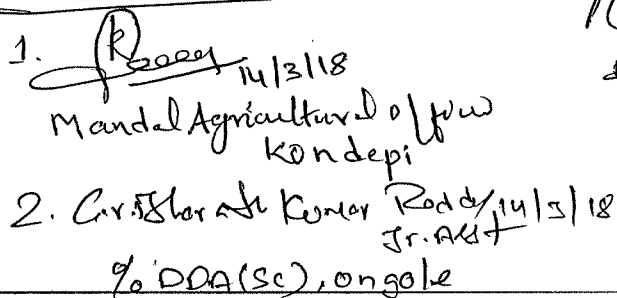 1.
14/3/18
Mandal Agricultural Officer
Kondepi
2. Kumar Reddy 14/3/18
Jr. Asst
% DDA(SC), Ongole